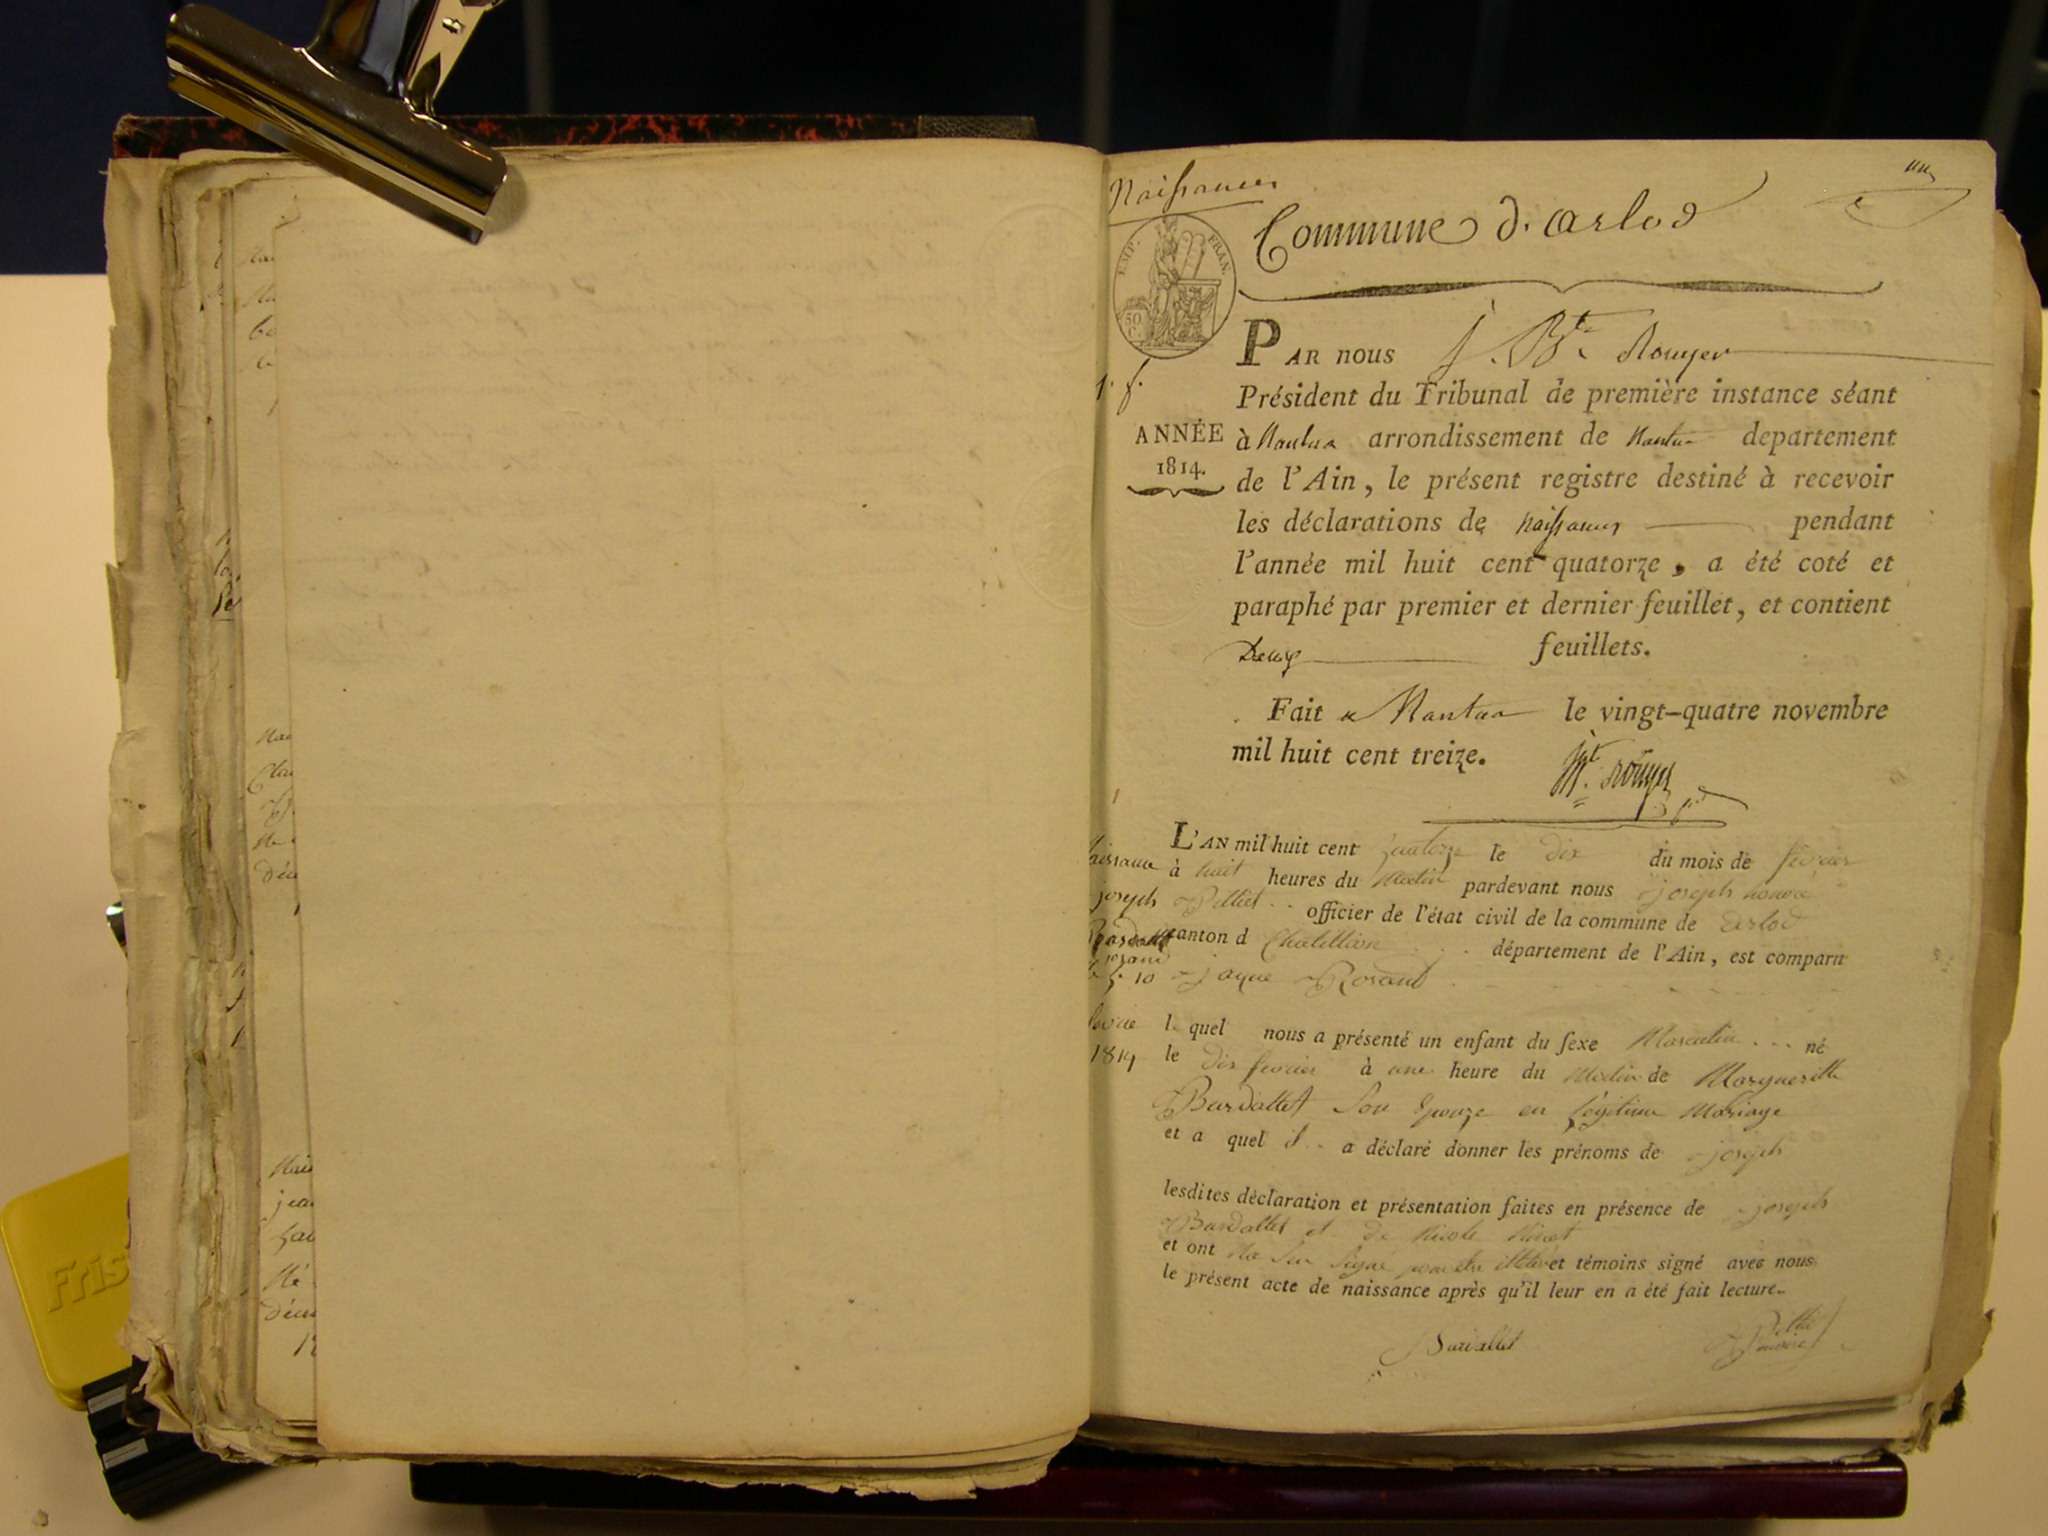 Naissances
Commune d'arlod
EMP. FRAN.
50 C.
PAR nous J. Bte. Rouyer
Président du Tribunal de première instance séant
ANNÉE
1814.
à Nantua arrondissement de Nantua departement
de l'Ain, le présent registre destiné à recevoir
les déclarations de naissances pendant
l'année mil huit cent quatorze, a été coté et
paraphé par premier et dernier feuillet, et contient
Deux feuillets.
Fait a Nantua le vingt-quatre novembre
mil huit cent treize.
L'AN mil huit cent quatorze le dix du mois de février
à huit heures du Matin pardevant nous joseph
officier de l'état civil de la commune de arlod
canton d Chatillion département de l'Ain, est comparu
jaque Rosand
le quel nous a présenté un enfant du sexe Masculin né
le dix fevrier à une heure du Matin de Margueritte
Bardallet Son Epouze en Légitime Mariage
et a quel il a déclaré donner les prénoms de joseph
lesdites déclaration et présentation faites en présence de joseph
Bardallet et de
et ont et témoins signé avec nous
le présent acte de naissance après qu'il leur en a été fait lecture.
Bardallet
joseph
10
1814
Fris